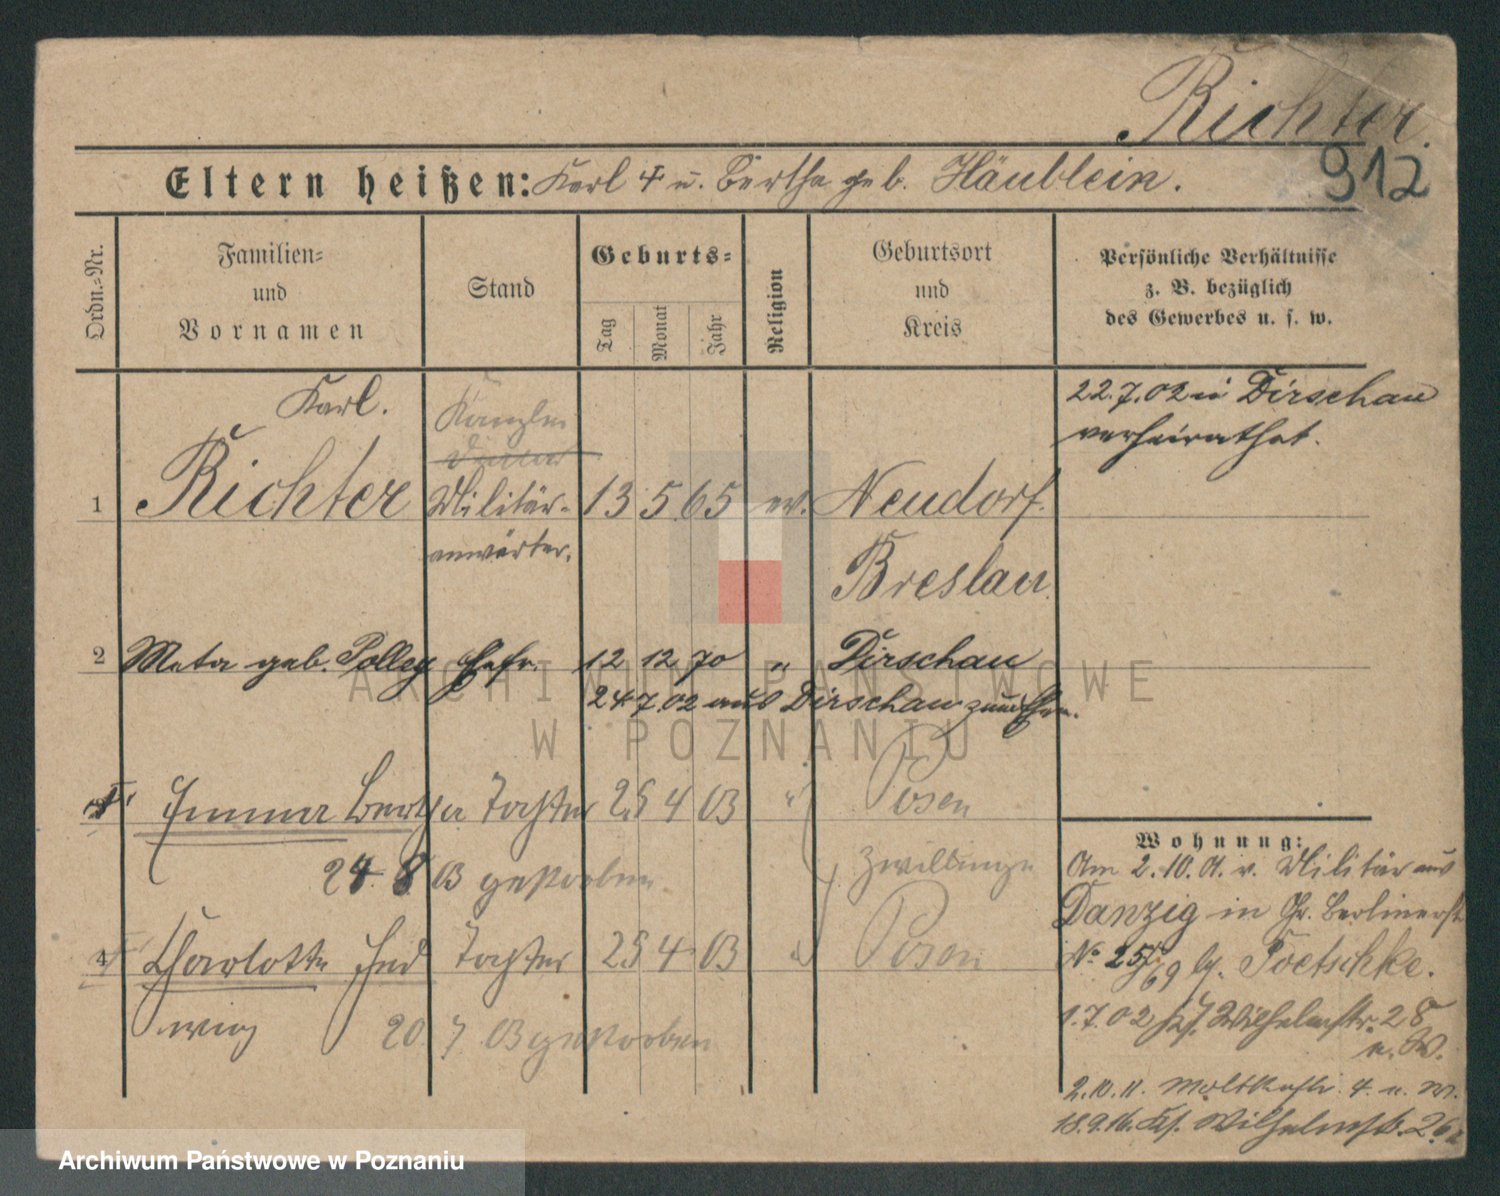 Richter.
912
Eltern heißen: Karl † u. Bertha geb. Häublein.
Ordn.-Nr.
Familien-
und
Vornamen
Stand
Geburts-
Tag
Monat
Jahr
Religion
Geburtsort
und
Kreis
Persönliche Verhältnisse
z. B. bezüglich
des Gewerbes u. s. w.
Karl.
Kanzlei
22.7.02 in Dirschau
verheirathet.
1 Richter Militär- 13 5 65 ev. Neudorf.
anwärter.
Breslau.
2 Meta geb. Polley Ehefr. 12 12 70 " Dirschau
24 7.02 aus Dirschau zum Ehem.
Emma Bertha Tochter 25 4 03 " Posen
24 8 03 gestorben
Zwillinge
4 Charlotte Hed Tochter 25 4 03 " Posen
wig 20 7 03 gestorben
Wohnung:
Am 2.10.01. v. Militär aus
Danzig in Gr. Berlinerstr.
No 25/69 b/. Poetschke.
1.7.02 Ks. Wilhelmstr. 28
u. W.
2.10.11. Moltkestr. 4. u. W.
18.9.16. Ks. Wilhelmstr. 26
ARCHIWUM PAŃSTWOWE
W POZNANIU
Archiwum Państwowe w Poznaniu